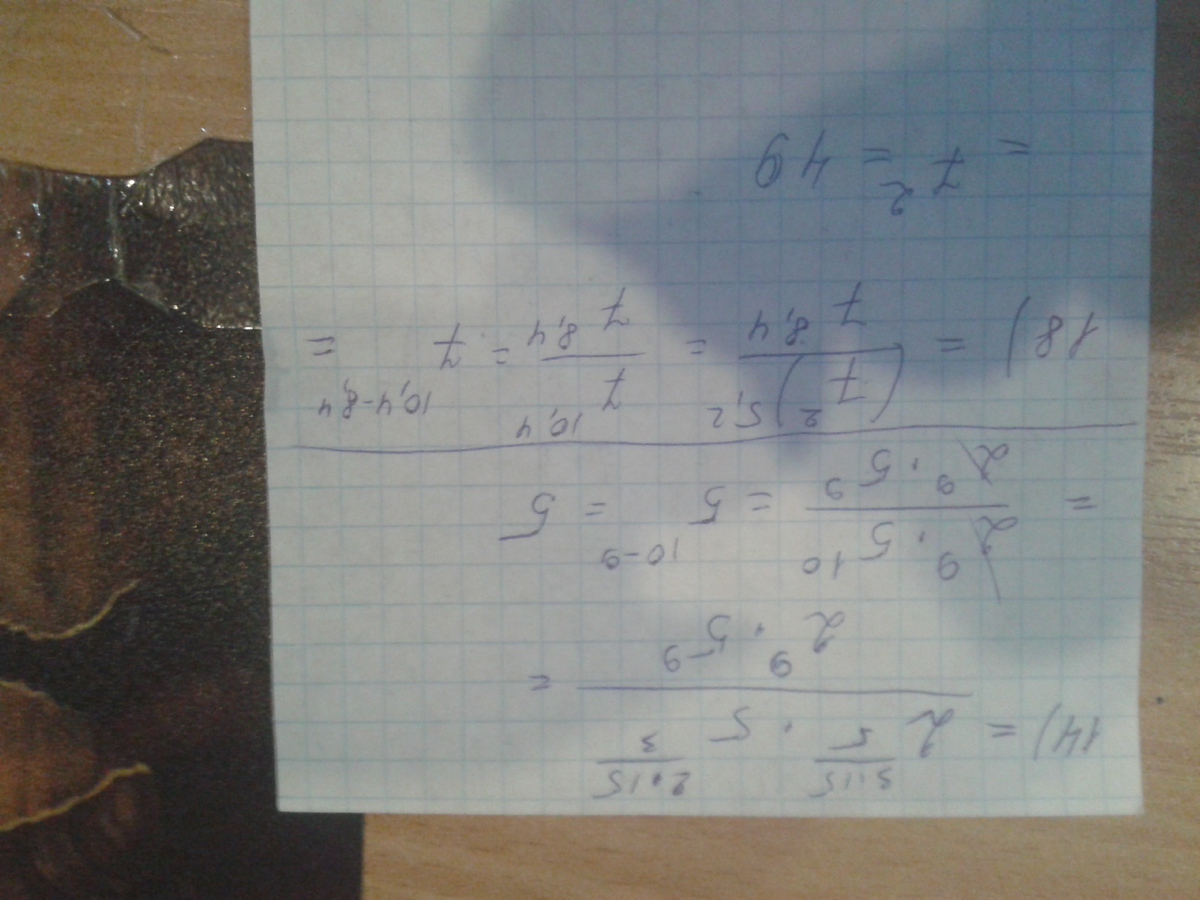 14) = 2^(3·15/5) · 5^(2·15/3) / 2^9 · 5^9 =
= 2^9 · 5^10 / 2^9 · 5^9 = 5^(10-9) = 5
18) = (7^2)^5,2 / 7^8,4 = 7^10,4 / 7^8,4 = 7^(10,4-8,4) =
= 7^2 = 49